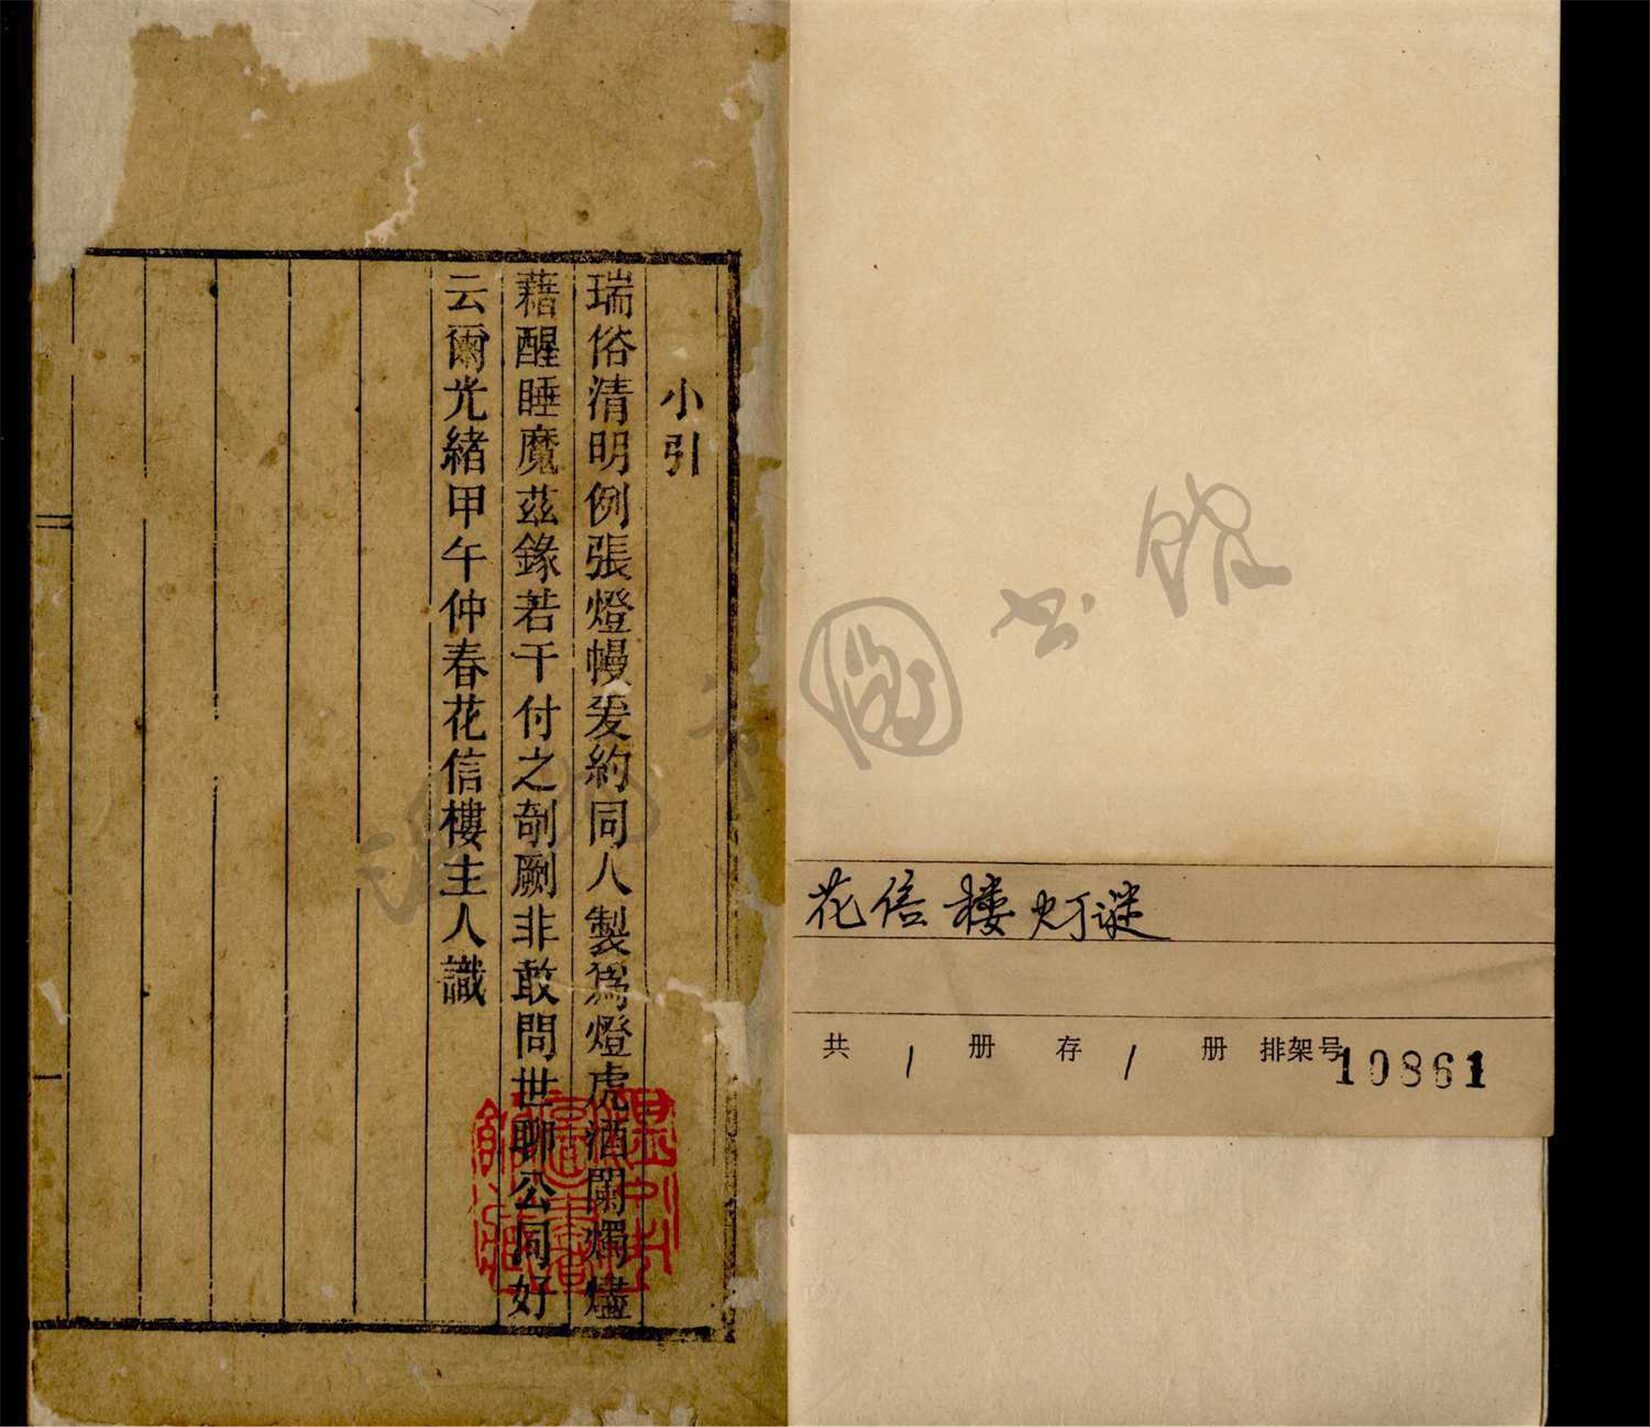 小引
瑞俗清明例張燈幔爰約同人製爲燈虎酒闌燭燼
藉醒睡魔茲錄若干付之剞劂非敢問世聊公同好
云爾光緒甲午仲春花信樓主人識
花信楼灯谜
共 1 册 存 1 册 排架号 10861
图书馆